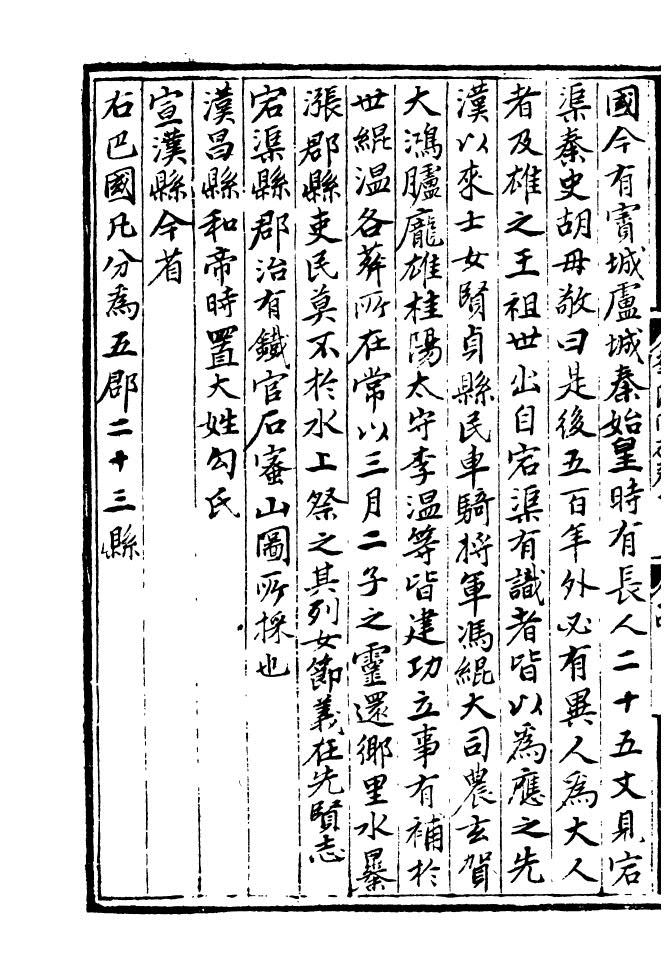 國今有賨城盧城秦始皇時有長人二十五丈見宕
渠秦史胡母敬曰是後五百年外必有異人為大人
者及雄之王祖世出自宕渠有識者皆以為應之先
漢以來士女賢貞縣民車騎將軍馮緄大司農玄賀
大鴻臚龐雄桂陽太守李溫等皆建功立事有補於
世緄溫各葬所在常以三月二子之靈還鄉里水暴
漲郡縣吏民莫不於水上祭之其列女節義在先賢志
宕渠縣郡治有鐵官石蜜山圖所採也
漢昌縣和帝時置大姓勾氏
宣漢縣今省
右巴國凡分為五郡二十三縣